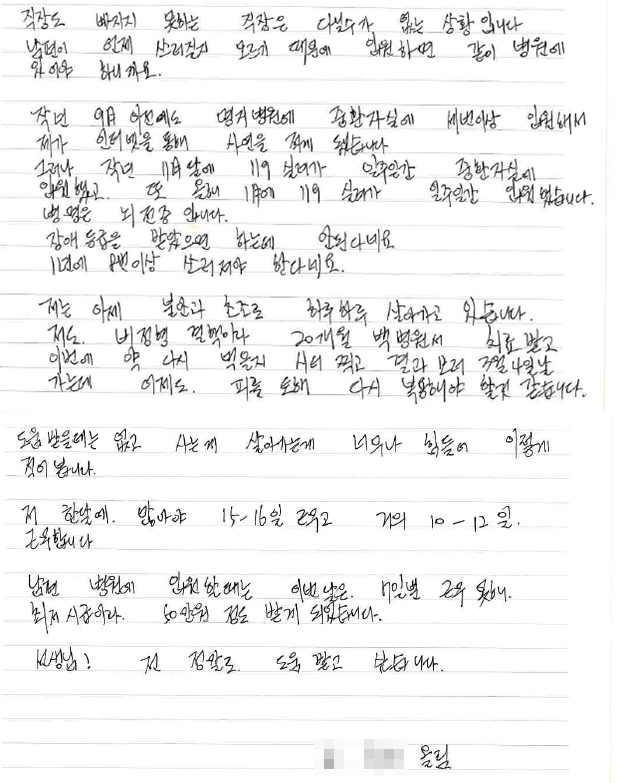 직장도 빠지지 못하는 직장은 다닐수가 없는 상황 입니다
남편이 언제 쓰러질지 모르기 때문에 입원하면 같이 병원에
있어야 하니까요.
작년 9月 이전에도 명지병원에 중환자실에 세번이상 입원해서
제가 인터넷을 통해 사연을 적게 됬습니다
그러나 작년 11月달에 119 실려가 일주일간 중환자실에
입원했고. 또 올해 1月에 119 실려가 일주일간 입원했습니다.
병명은 뇌전증 입니다.
장애등급을 받았으면 하는데 안된다네요
1년에 8번이상 쓰러져야 한다네요.
저는 이제 불안과 초조로 하루하루 살아가고 있습니다.
저도. 비정형 결핵이라 20개월 백병원서 치료 받고
이번에 약 다시 먹을지 시티 찍고 결과 보러 7월 4일날
가는데 어제도. 피를 토해 다시 복용해야 할것 같습니다.
도움 받을데는 없고 사는게 살아가는게 너무나 힘들어 이렇게
적어 봅니다.
저 한달에. 많아야 15-16일 근무고 거의 10-12일.
근무합니다
남편 병원에 입원할때는 이번달은. 7일별 근무 못해.
최저시급이라. 50만원 정도 받게 되었습니다.
선생님! 전 정말로. 도움 받고 싶습니다.
올림